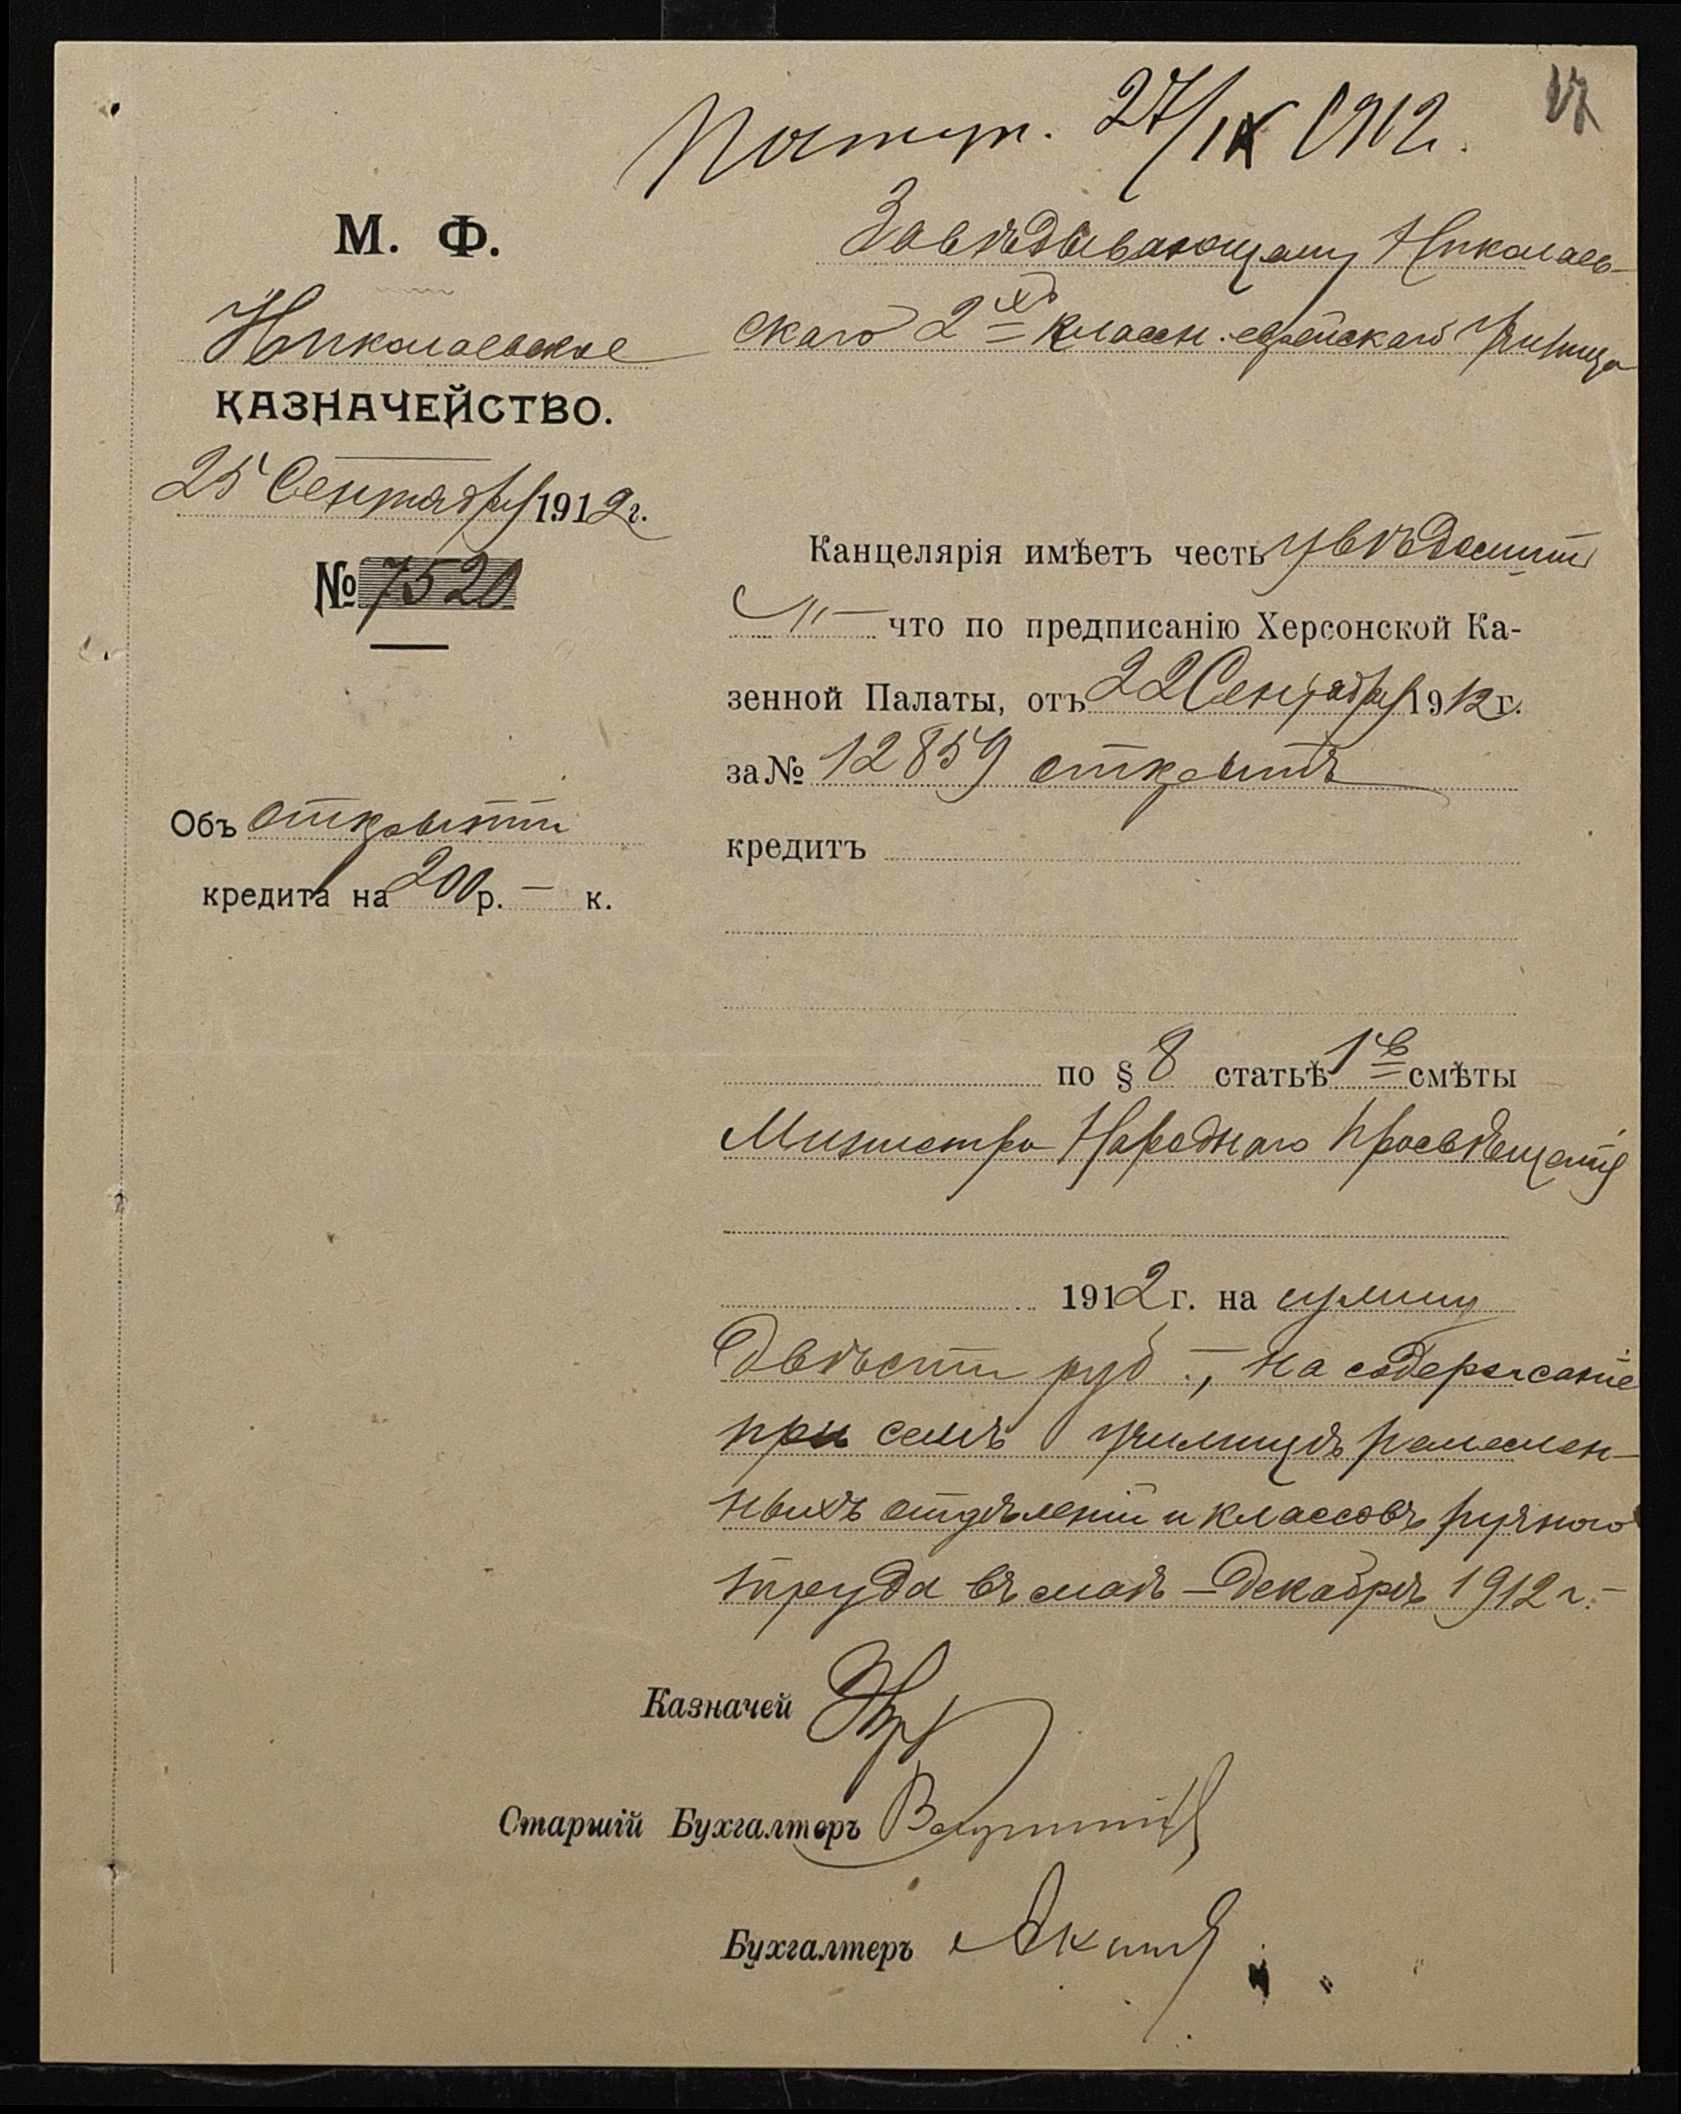 17
Поступ. 27/IX 1912 г.
М. Ф.
Николаевское
КАЗНАЧЕЙСТВО.
25 Сентября 1912 г.
№ 7520
Объ открытіи
кредита на 200 р. — к.
Завѣдывающему Николаев-
скаго 2хъ классн. еврейскаго Училища
Канцелярія имѣетъ честь увѣдомить
что по предписанію Херсонской Ка-
зенной Палаты, отъ 22 Сентября 1912 г.
за № 12859 открытъ
кредитъ
по § 8 статьѣ 1 смѣты
Министра Народнаго Просвѣщенія
1912 г. на сумму
Двѣсти руб. —, на содержаніе
при семъ Училищѣ ремеслен-
ныхъ отдѣленій и классовъ ручного
труда въ маѣ — Декабрѣ 1912 г. —
Казначей
Старшій Бухгалтеръ
Бухгалтеръ